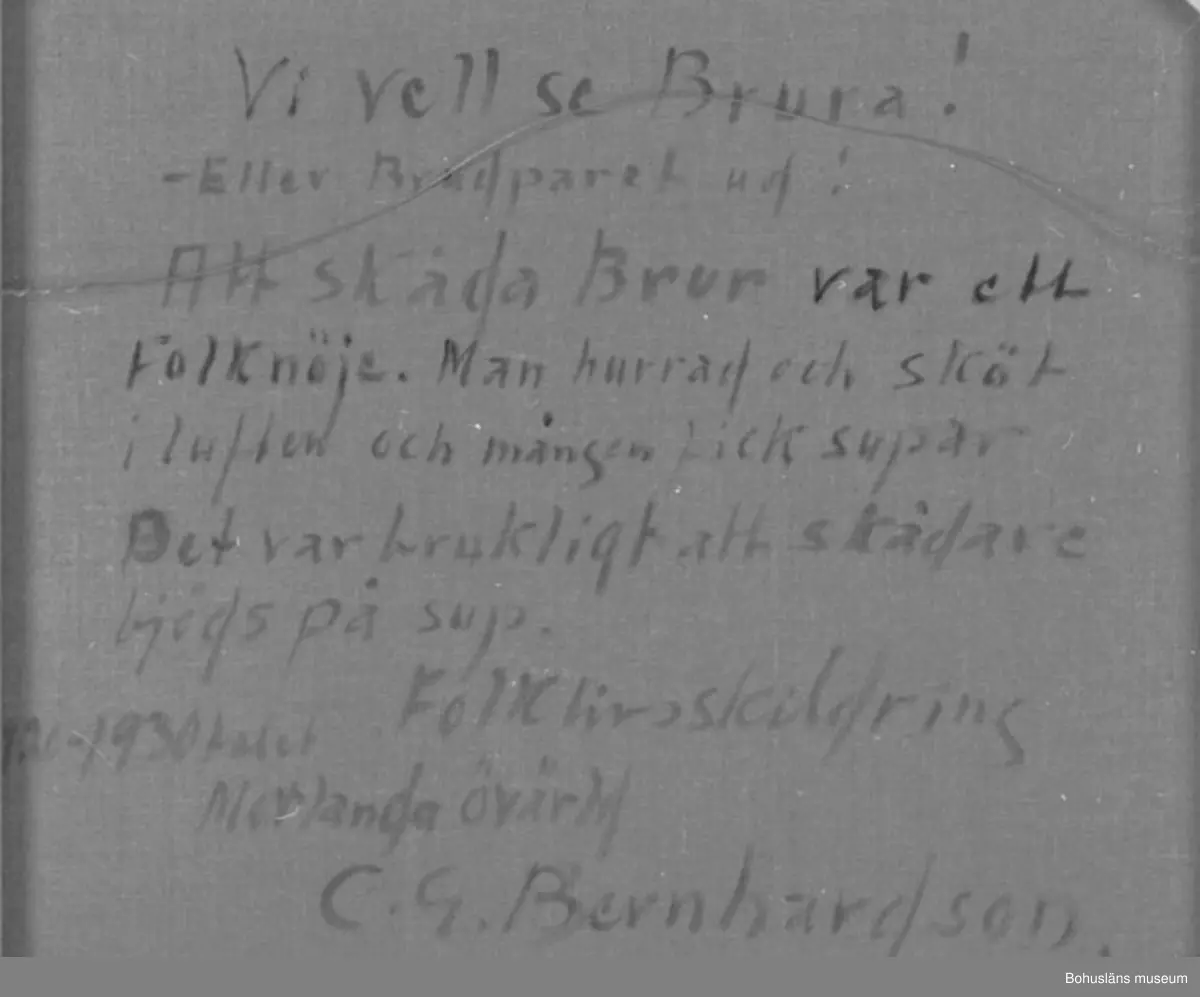 Vi vell se Brura!
- Eller Brudparet ud!
Att skåda Brur var ett
Folknöje. Man hurrad och sköt
i luften och mången fick supar
Det var brukligt att skådare
bjöds på sup.
Folklivsskildring
-1930talet
Morlanda
C.G. Bernhardson.
Bohusläns museum